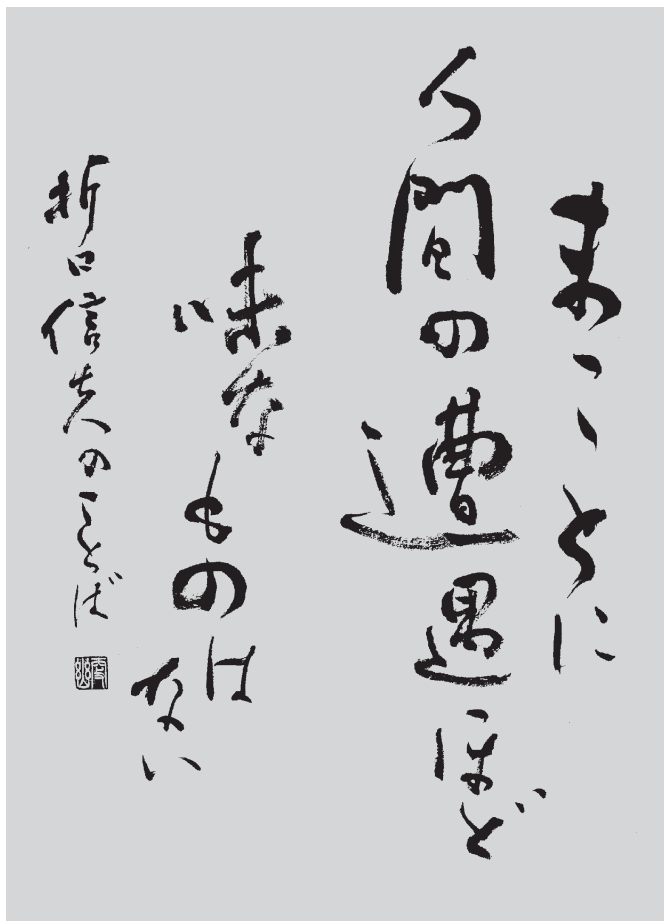 まことに
人間の遭遇ほど
味な
ものは
ない
折口信夫のことば